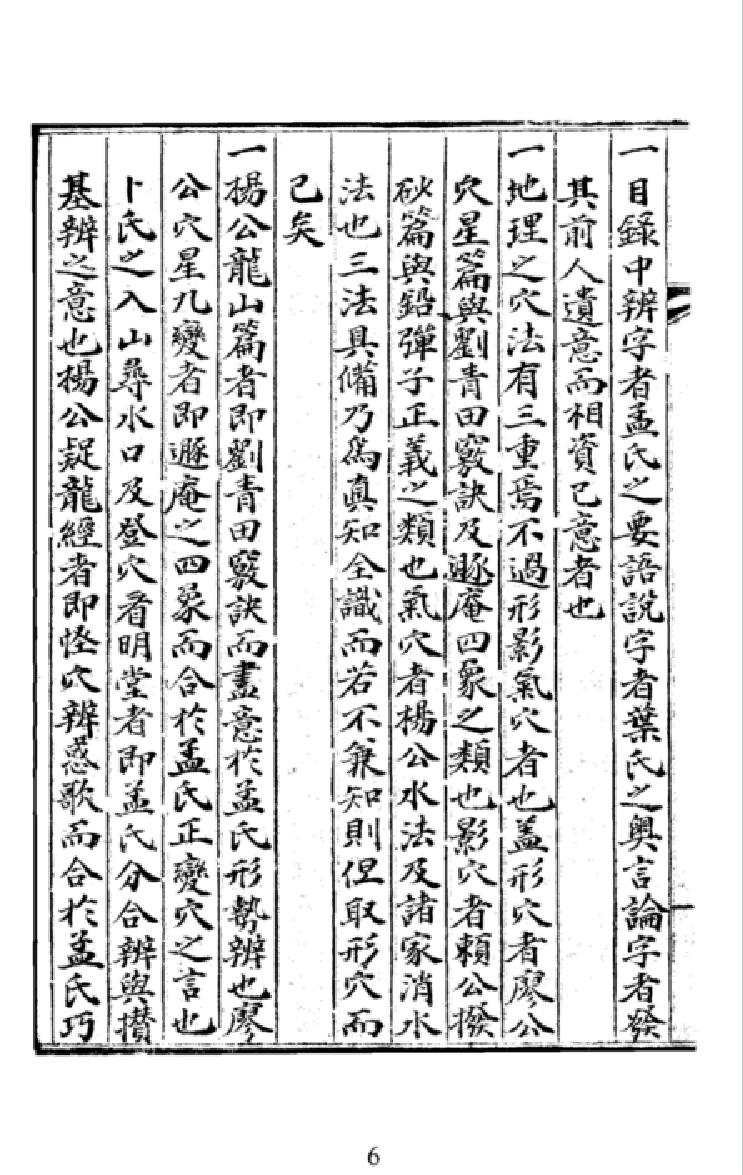 一目錄中辨字者孟氏之要語説字者葉氏之奥言論字者發
其前人遺意而相資己意者也
一地理之穴法有三重焉不過形影氣穴者也盖形穴者廖公
穴星篇與劉青田竅訣及遯庵四象之類也影穴者賴公撥
砂篇與鉛彈子正義之類也氣穴者楊公水法及諸家消水
法也三法具備乃為真知全識而若不兼知則但取形穴而
已矣
一楊公龍山篇者即劉青田竅訣而畫意於孟氏形勢辨也廖
公穴星九變者即遯庵之四象而合於孟氏正變穴之言也
卜氏之入山尋水口及登穴看明堂者即孟氏分合辨與攅
基辨之意也楊公疑龍經者即怪穴辨惑歌而合於孟氏巧
6